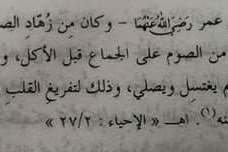 عمر رَضِيَ اللهُ عَنْهُمَا – وكان مِن زُهَّادِ
من الصوم على الجماع قبل الأكل،
يغتسل ويصلي، وذلك لتفريغ القلب
(١). اهـ « الإحياء : ٢٧/٢ »